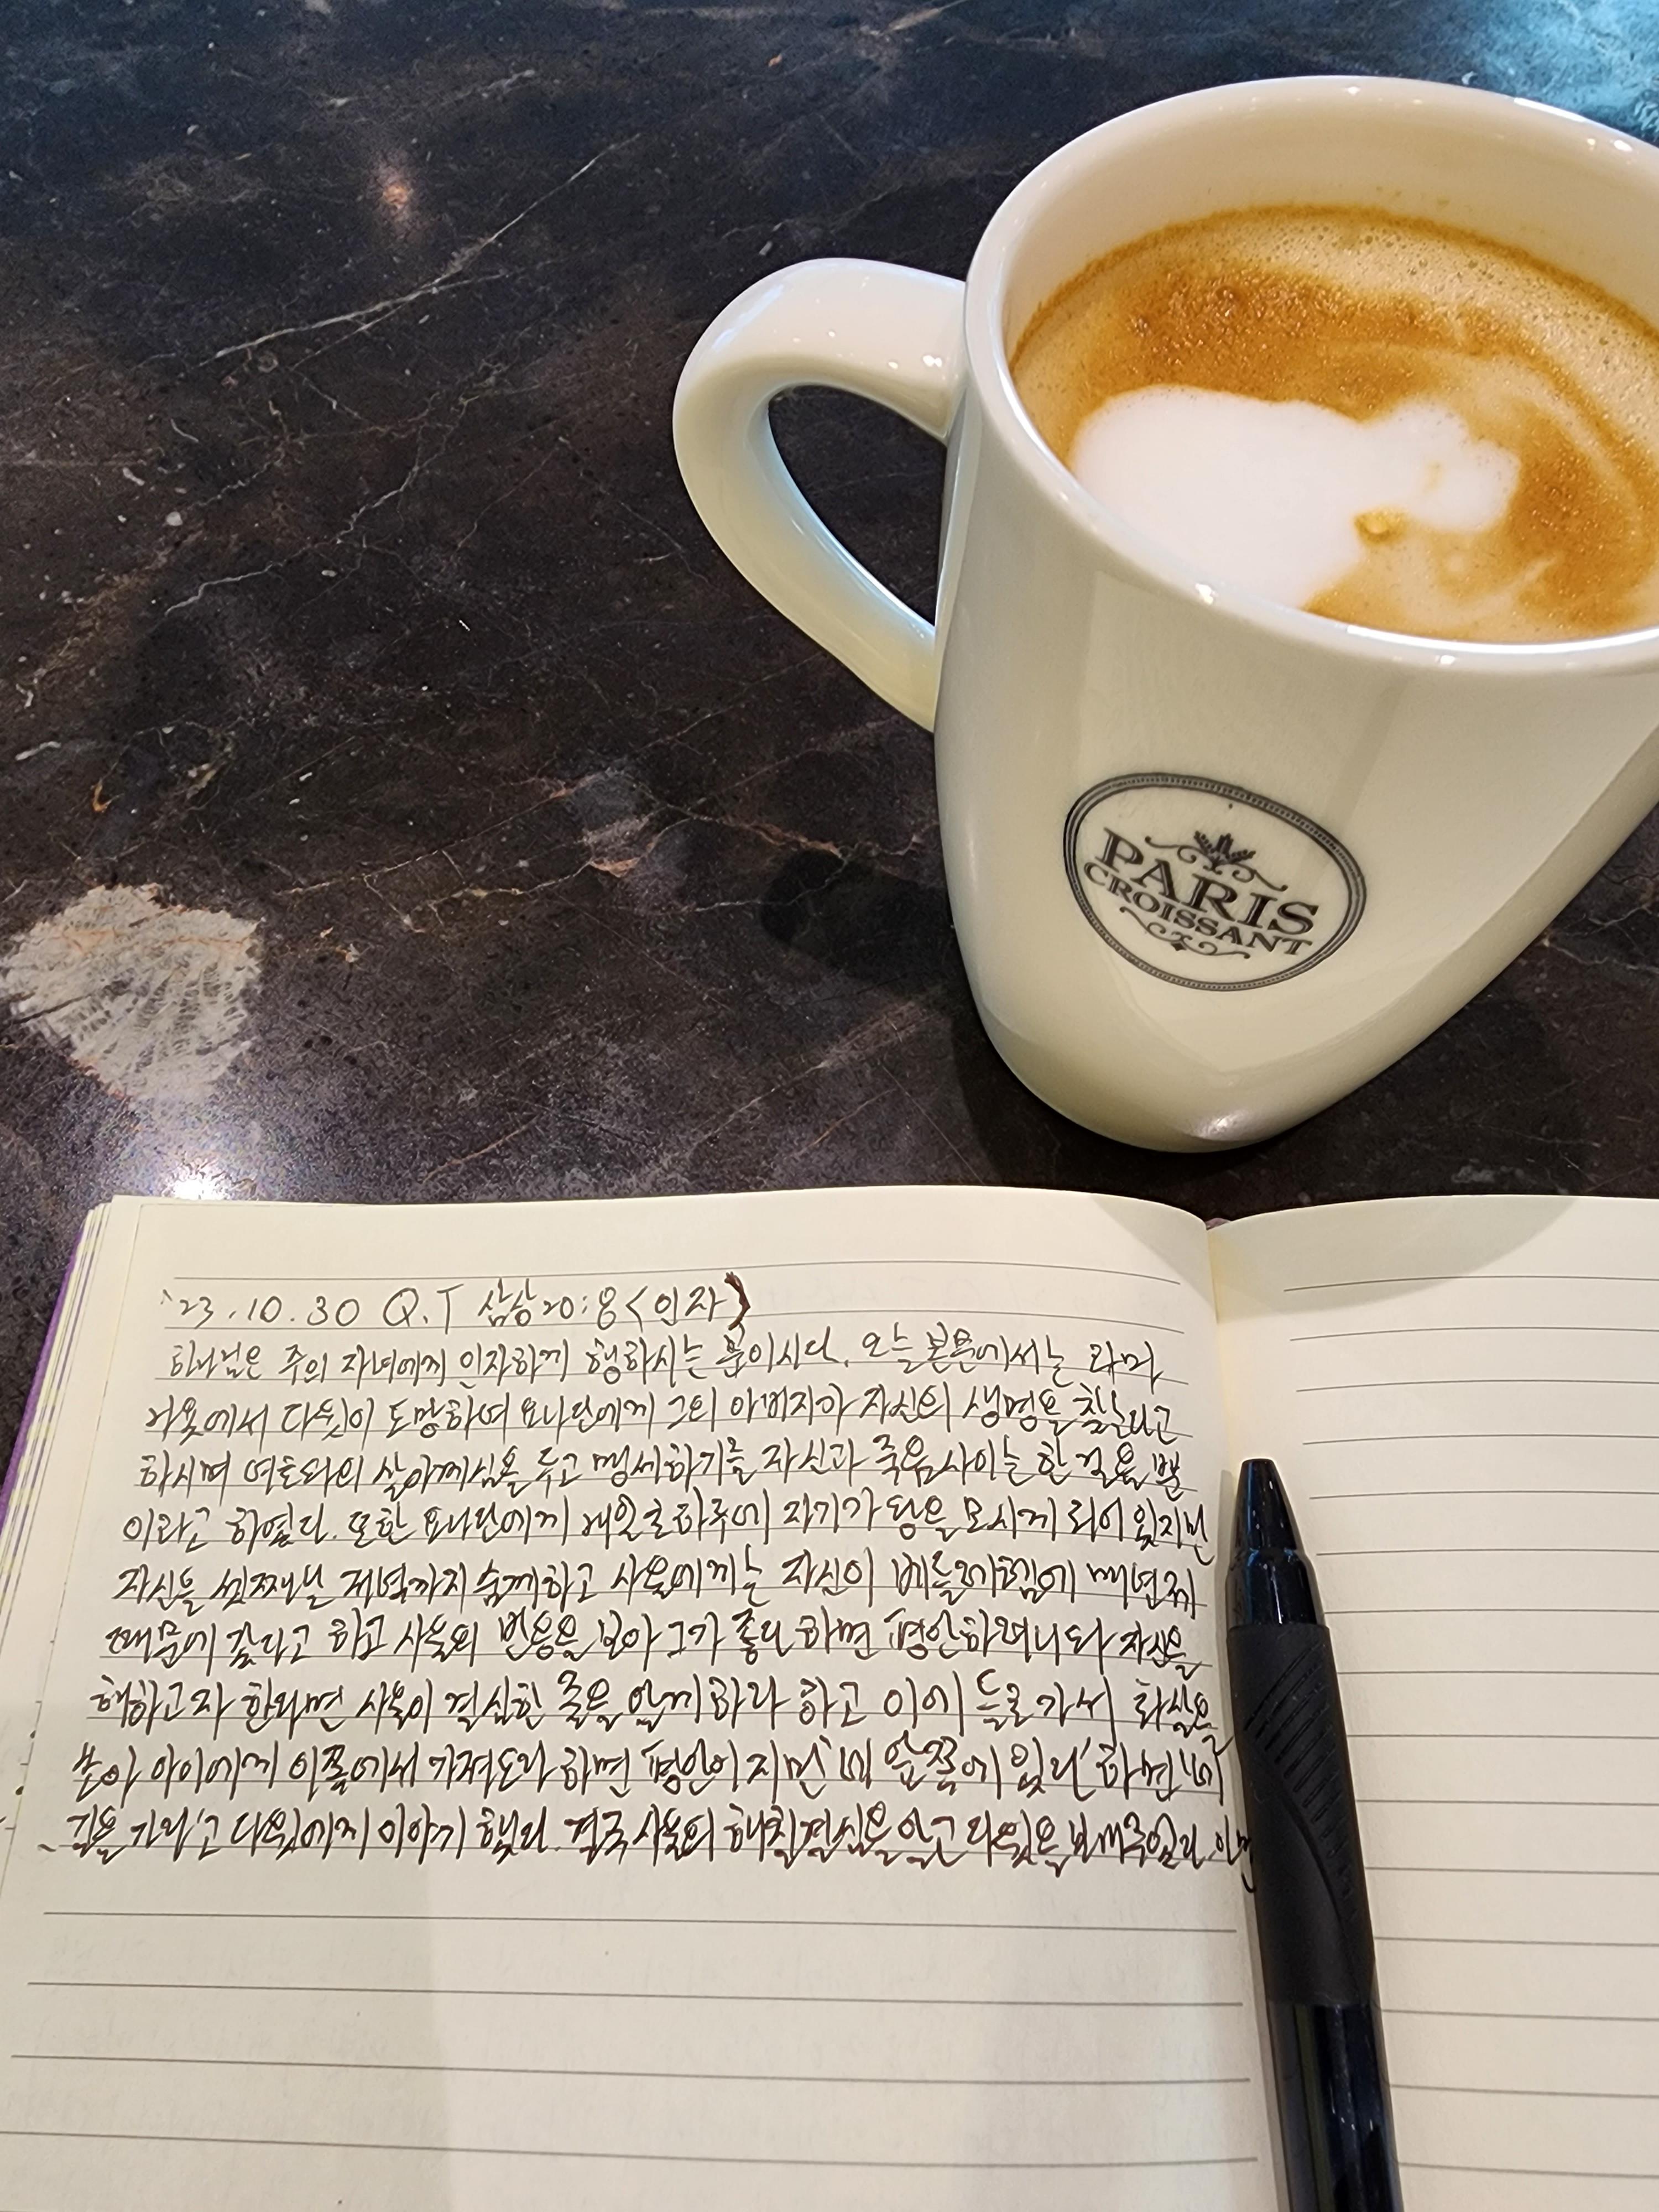 PARIS
CROISSANT
'23.10.30 Q.T 삼상20:8<인자>
하나님은 주의 자녀에게 인자하게 행하시는 분이시다. 오늘 본문에서는 라마
나욧에서 다윗이 도망하여 요나단에게 그의 아버지가 자신의 생명을 찾는다고
하시며 여호와의 살아계심을 두고 맹세하기를 자신과 죽음사이는 한 걸음 뿐
이라고 하였다. 또한 요나단에게 내일 초하루에 자기가 왕을 모시게 되어 있지만
자신을 셋째날 저녁까지 숨게하고 사울에게는 자신이 베들레헴에 매년제
때문에 갔다고 하고 사울의 반응을 보아 그가 좋다 하면 평안하려니와 자신을
해하고자 한다면 사울이 결심한 줄을 알게하라 하고 이에 들로 가서 화살을
쏘아 아이에게 이쪽에서 가져오라 하면 평안이지만 '네 앞쪽에 있다' 하면 '네
길을 가라'고 다윗에게 이야기 했다. 결국 사울의 해칠 결심을 알고 다윗을 보내주었다.